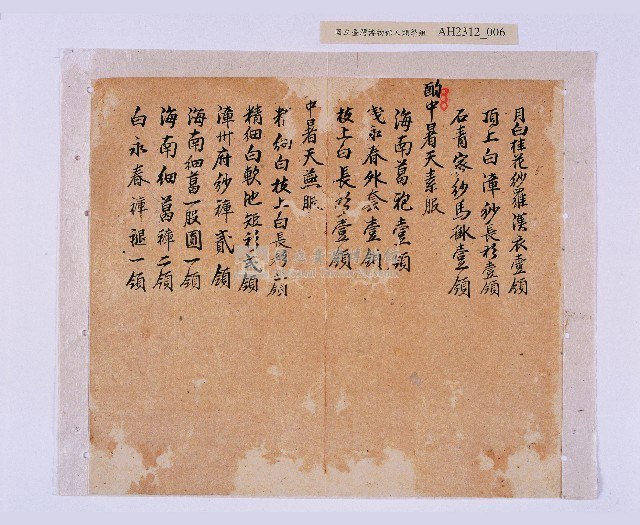 國立臺灣博物館人類學組 AH2312_006
月白桂花紗羅漢衣壹領
頂上白漳紗長衫壹領
石青家紗馬褂壹領
酌中暑天素服
海南葛袍壹領
淺永春外套壹領
枝上白長衫壹領
中暑天燕服
幼白枝上白長衫領
精細白軟池短衫弍領
漳州府紗褲貳領
海南細葛一股圓一領
海南細葛褲二領
白永春褲褪一領
國立臺灣博物館
National Taiwan Museum